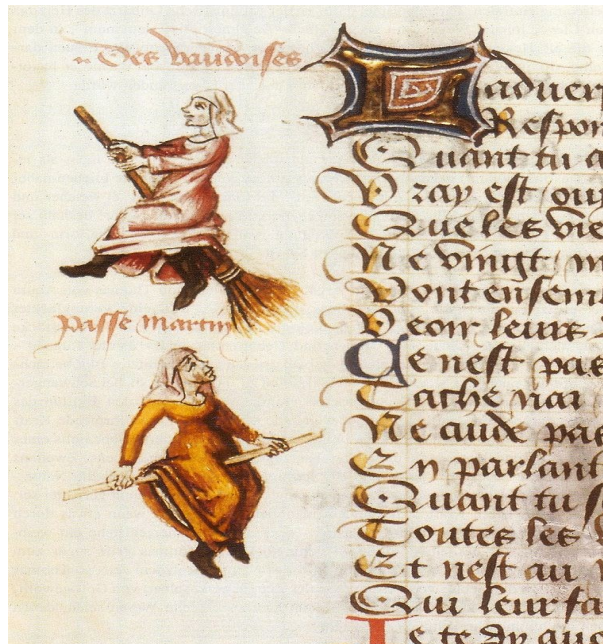 Des vaudoises
passe martin
Ladver
Respon
Quant tu a
Vray est ouy
Que les vie
Ne vingt m
Vont ensem
Veoir leurs
Ce nest pas
Ne cuide pas
En parlant
Quant tu s
Toutes les
Et nest au
Qui leur fa
Je te dy